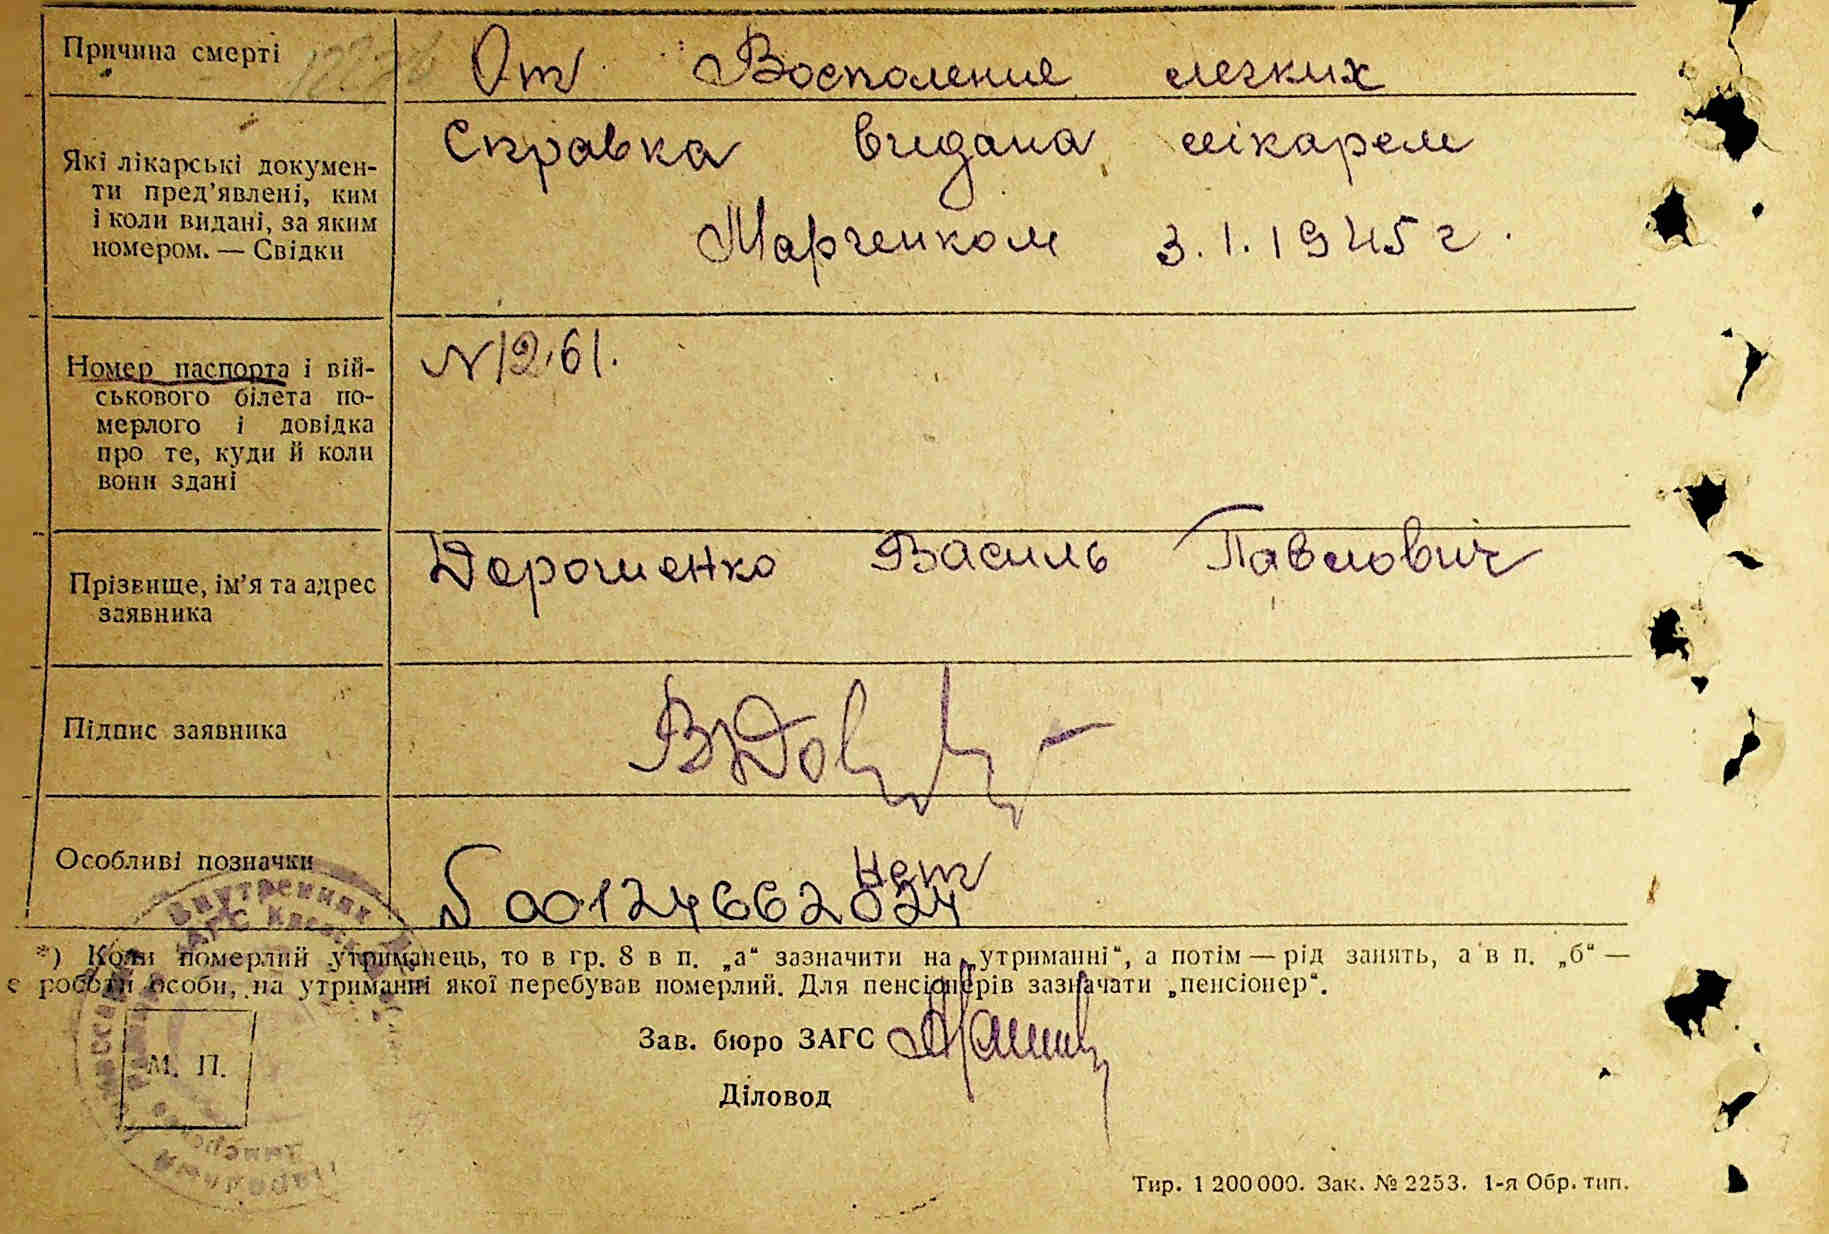 Причина смерті
От Восполение легких
Які лікарські докумен-
ти пред’явлені, ким
і коли видані, за яким
номером. — Свідки
Справка видана лікарем
Марченком 3.1.1945 г.
Номер паспорта і вій-
ськового білета по-
мерлого і довідка
про те, куди й коли
вони здані
N 1261.
Прізвище, ім’я та адрес
заявника
Дорошенко Василь Павлович
Підпис заявника
Особливі позначки
нет
00124662824
*) Коли померлий утриманець, то в гр. 8 в п. „а“ зазначити на „утриманні“, а потім — рід занять, а в п. „б“ —
є роботи особи, на утриманні якої перебував померлий. Для пенсіонерів зазначати „пенсіонер“.
Зав. бюро ЗАГС
М. П.
Діловод
Тир. 1 200 000. Зак. № 2253. 1-я Обр. тип.